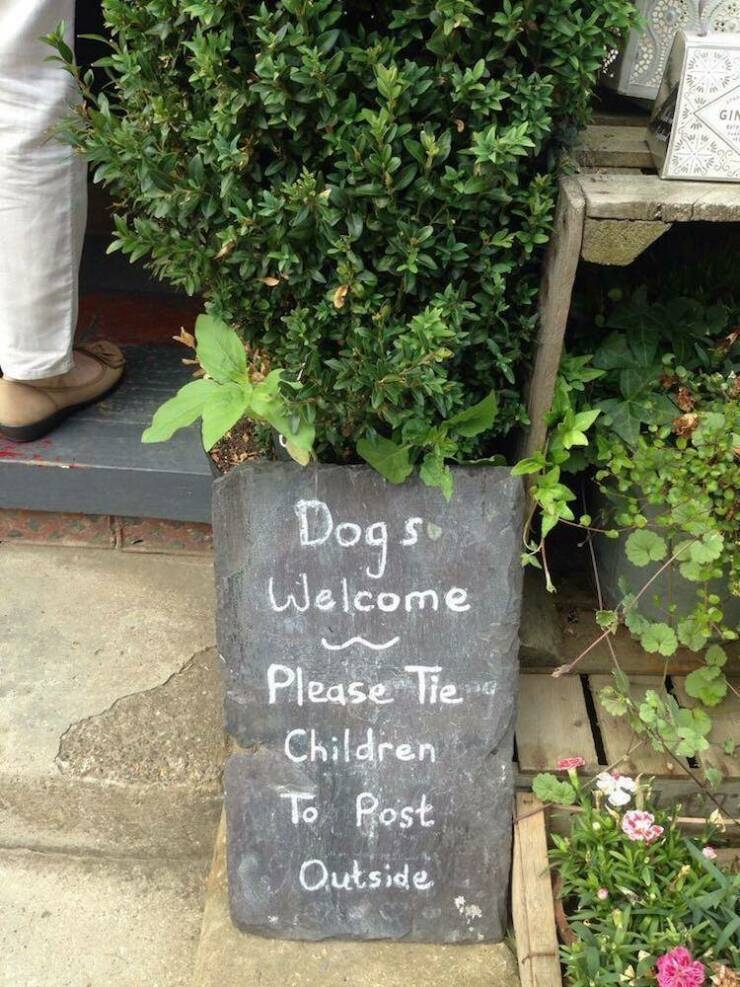 GIN
Dogs
Welcome
Please Tie
Children
To Post
Outside